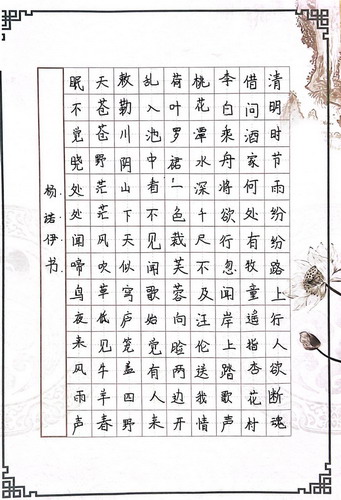 清明时节雨纷纷路上行人欲断魂
借问酒家何处有牧童遥指杏花村
李白乘舟将欲行忽闻岸上踏歌声
桃花潭水深千尺不及汪伦送我情
荷叶罗裙一色裁芙蓉向脸两边开
乱入池中看不见闻歌始觉有人来
敕勒川阴山下天似穹庐笼盖四野
天苍苍野茫茫风吹草低见牛羊春
眠不觉晓处处闻啼鸟夜来风雨声
杨诺伊书